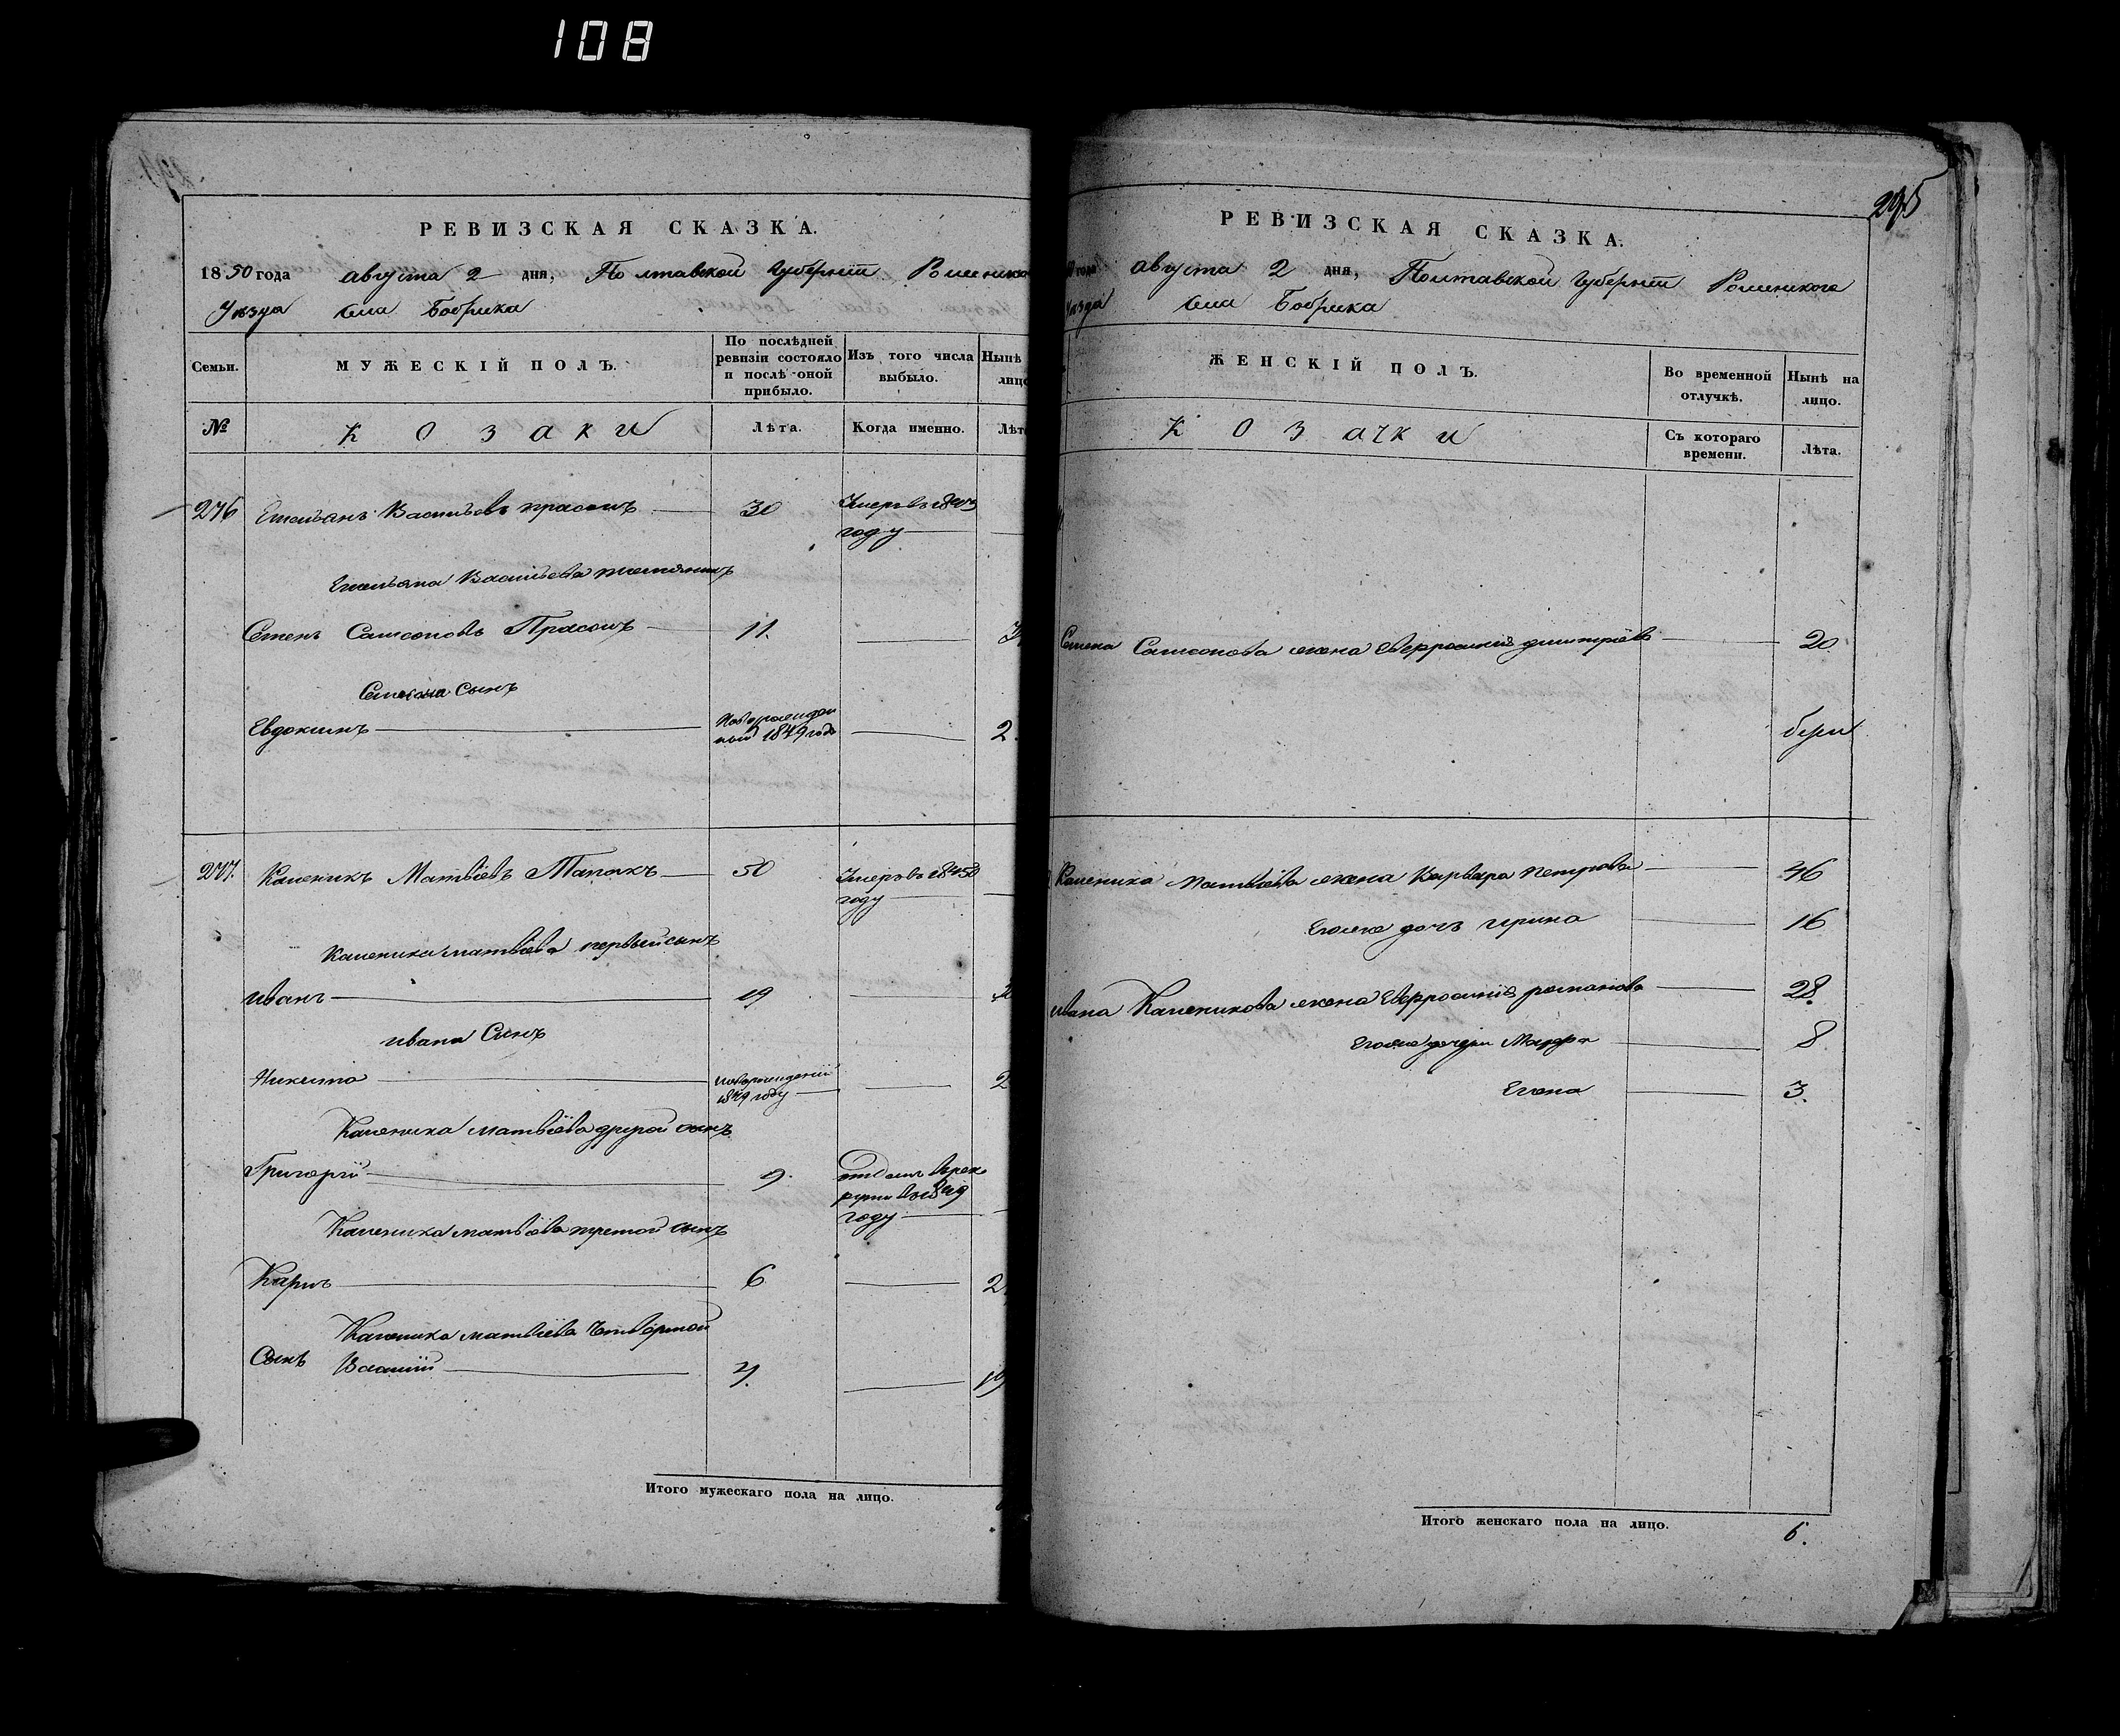 108
РЕВИЗСКАЯ СКАЗКА.
1850 года августа 2 дня, Полтавской Губернiи Роменска
Уѣзда села Бобрика
Семьи.
МУЖЕСКІЙ ПОЛЪ.
По послѣдней ревизіи состояло и послѣ оной прибыло.
Изъ того числа выбыло.
Нынѣ лицо
№
Козаки
Лѣта.
Когда именно.
Лѣта
276 Емельянъ Васильевъ Прасолъ 30 Умеръ въ 18
году
Емельяна Васильева племянникъ
Семенъ Самсоновъ Прасолъ 11.
Семена Сынъ
Евдокимъ Новорожден
ный 1849 года 2.
277. Каленикъ Матвѣевъ 50 Умеръ въ 1850
году
Каленика матвѣева первый сынъ
иванъ 19
ивана Сынъ
Никита новорожденiй
1849 году 2
Каленика матвѣева другой сынъ
Григорiй 9. отданъ в рек
руты въ 1849
году
Каленика матвѣева третой сынъ
Карпъ 6 2
Каленика матвѣева
Сынъ Василiй 19
Итого мужескаго пола на лицо.
295
РЕВИЗСКАЯ СКАЗКА.
года августа 2 дня, Полтавской Губернiи Роменского
Уѣзда села Бобрика
ЖЕНСКІЙ ПОЛЪ.
Во временной отлучкѣ.
Нынѣ на лицо.
Козачки
Съ котораго времени.
Лѣта.
Семена Самсонова жена Евфросинiя дмитрiева 20
Каленика матвѣева жена Варвара петрова 46
Егоже дочь ирина 16
ивана Каленикова жена Евфросинiя романова 28.
Егоже дочери Марфа 8.
Елена 3.
Итого женскаго пола на лицо. 6.